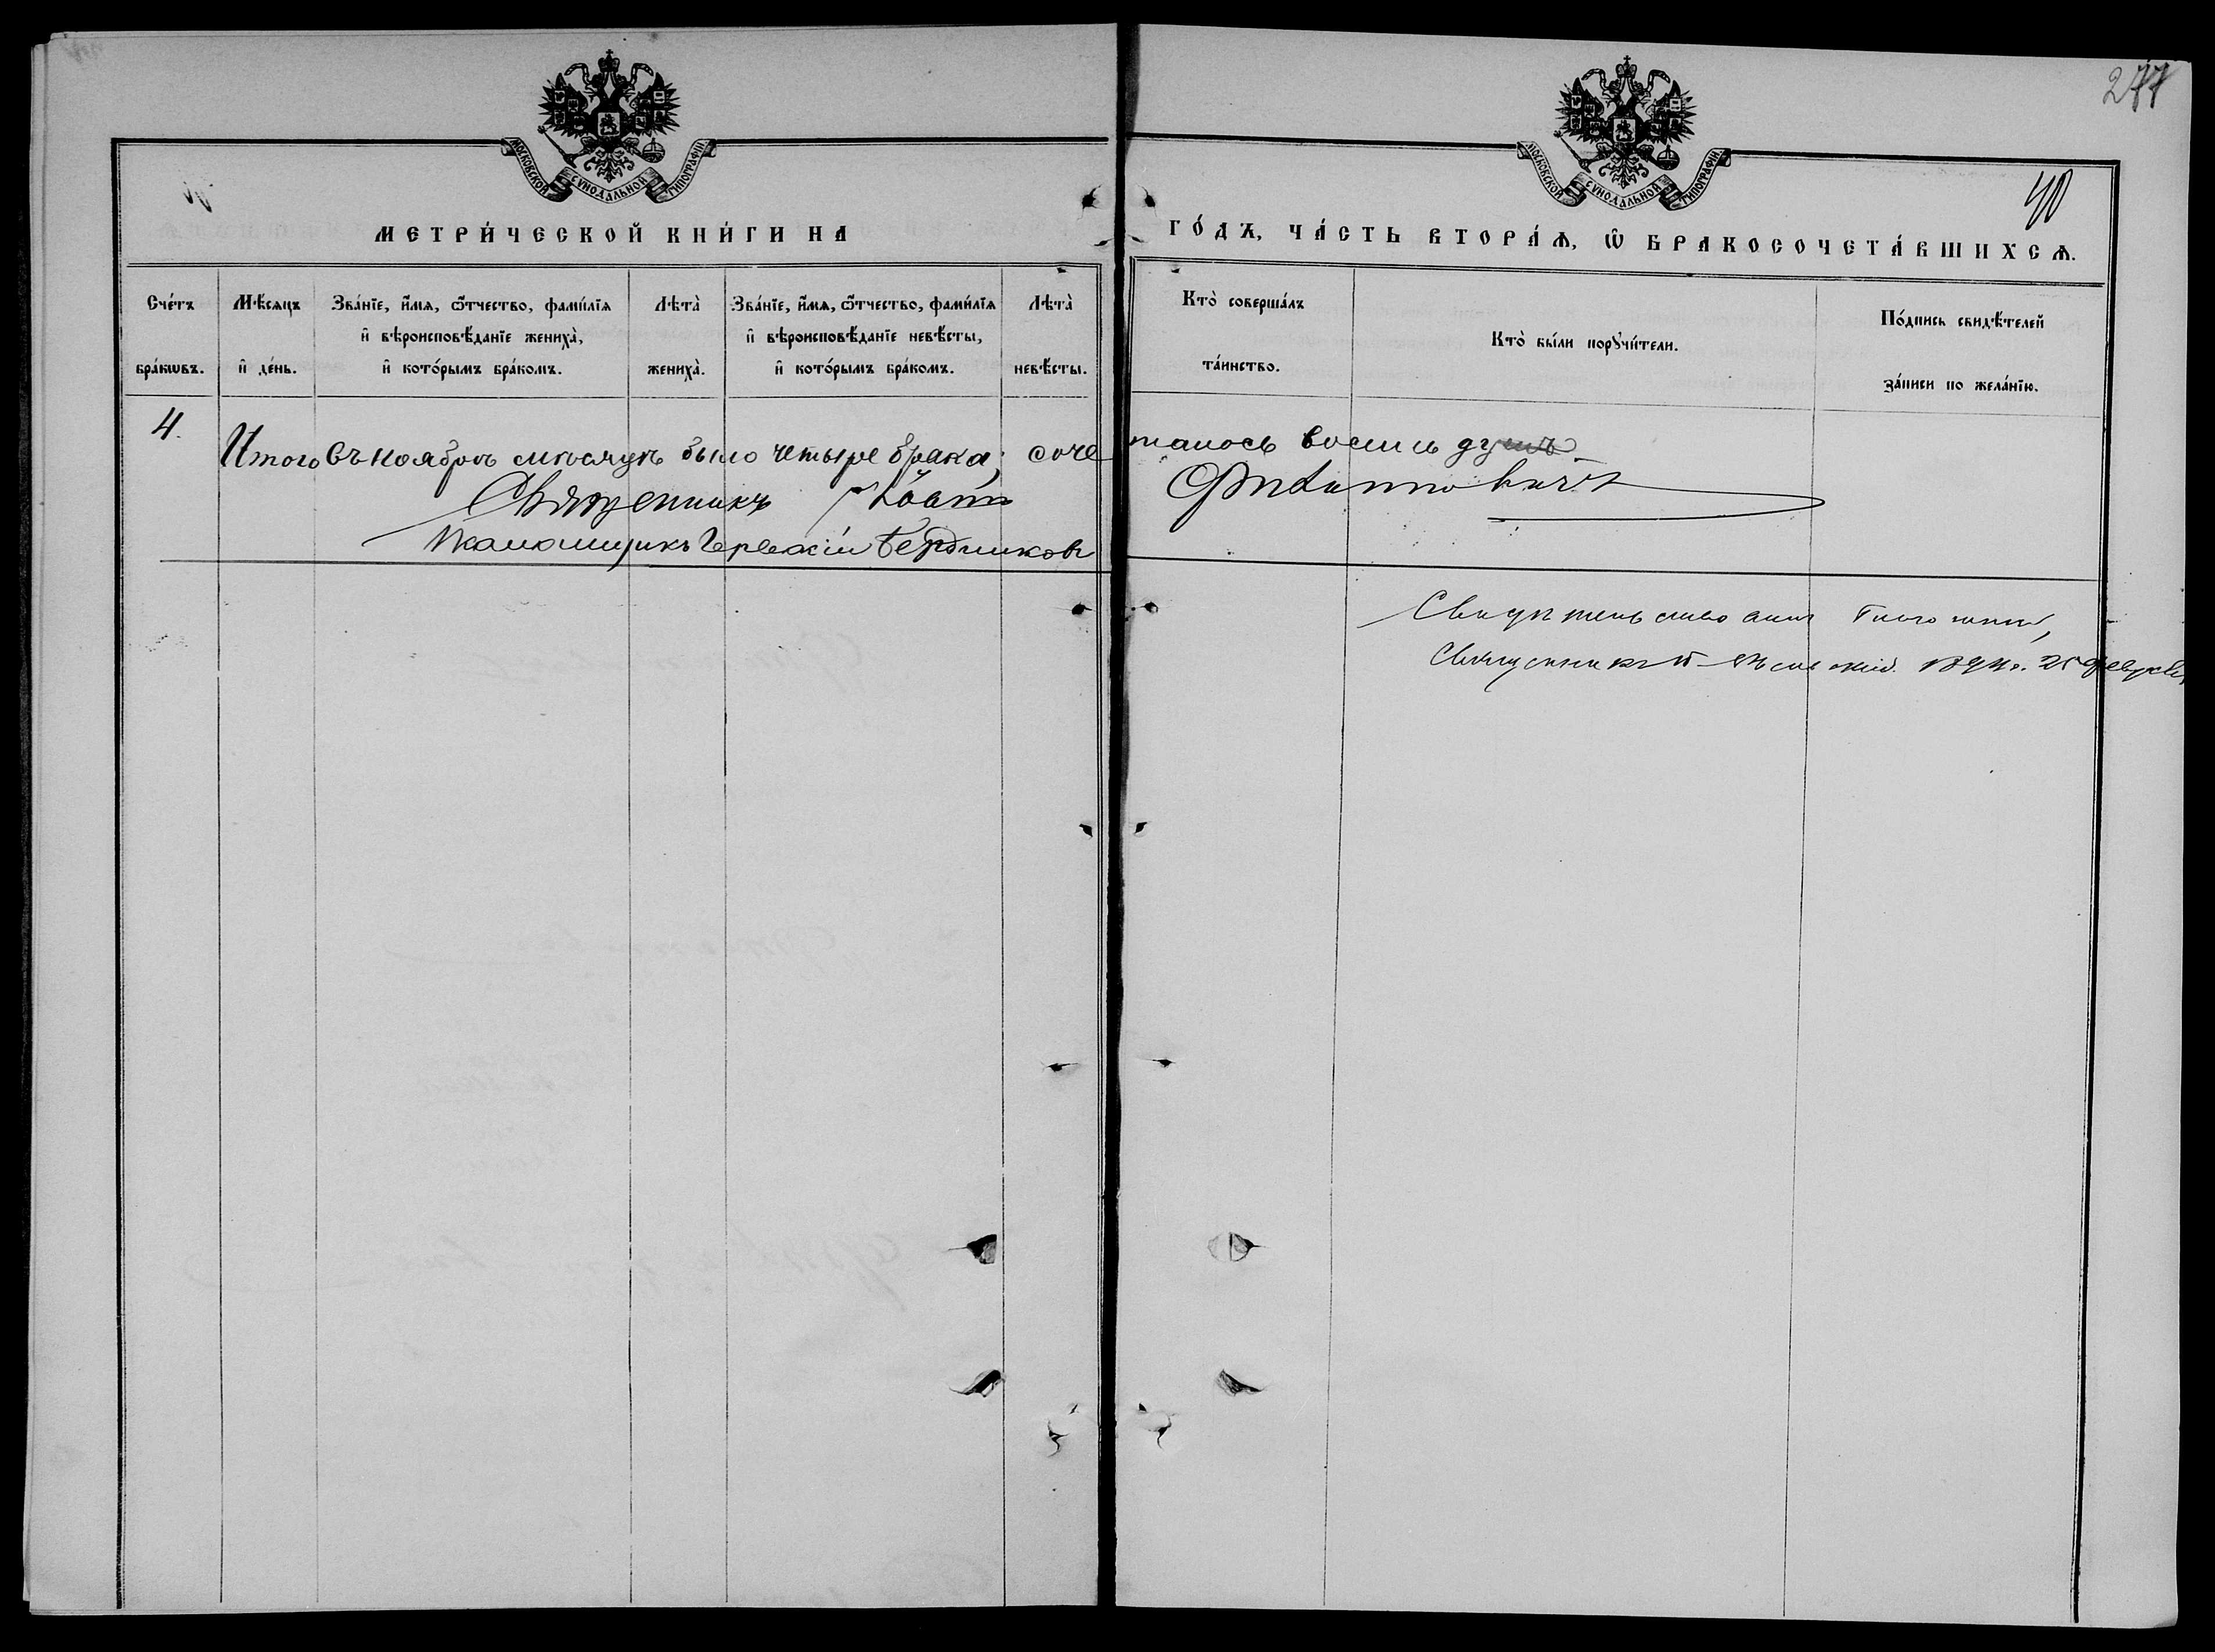 277
40
МОСКОВСКОЙ СѴНОДАЛЬНОЙ ТИПОГРАФІИ
МОСКОВСКОЙ СѴНОДАЛЬНОЙ ТИПОГРАФІИ
МЕТРИ́ЧЕСКОЙ КНИ́ГИ НА ГО́ДЪ, ЧА́СТЬ ВТОРА́Ѧ, Ѽ БРАКОСОЧЕТА́ВШИХСѦ.
Сче́тъ бра́кѡвъ.
Мѣ́сяцъ и҆ де́нь.
Зва́нїе, и҆́мѧ, ѻ҆́тчество, фами́лїѧ
и҆ вѣроисповѣ́данїе жениха̀,
и҆ кото́рымъ бра́комъ.
Лѣта̀ жениха̀.
Зва́нїе, и҆́мѧ, ѻ҆́тчество, фами́лїѧ
и҆ вѣроисповѣ́данїе невѣ́сты,
и҆ кото́рымъ бра́комъ.
Лѣта̀ невѣ́сты.
Кто̀ соверша́лъ та́инство.
Кто̀ бы́ли порꙋчи́тели.
По́дпись свидѣ́телей за́писи по жела́нїю.
4.
Итого въ ноябрѣ мѣсяцѣ было четыре брака; сочеталось восемь душъ.
Священникъ
Псаломщикъ Бердниковъ
Священникъ